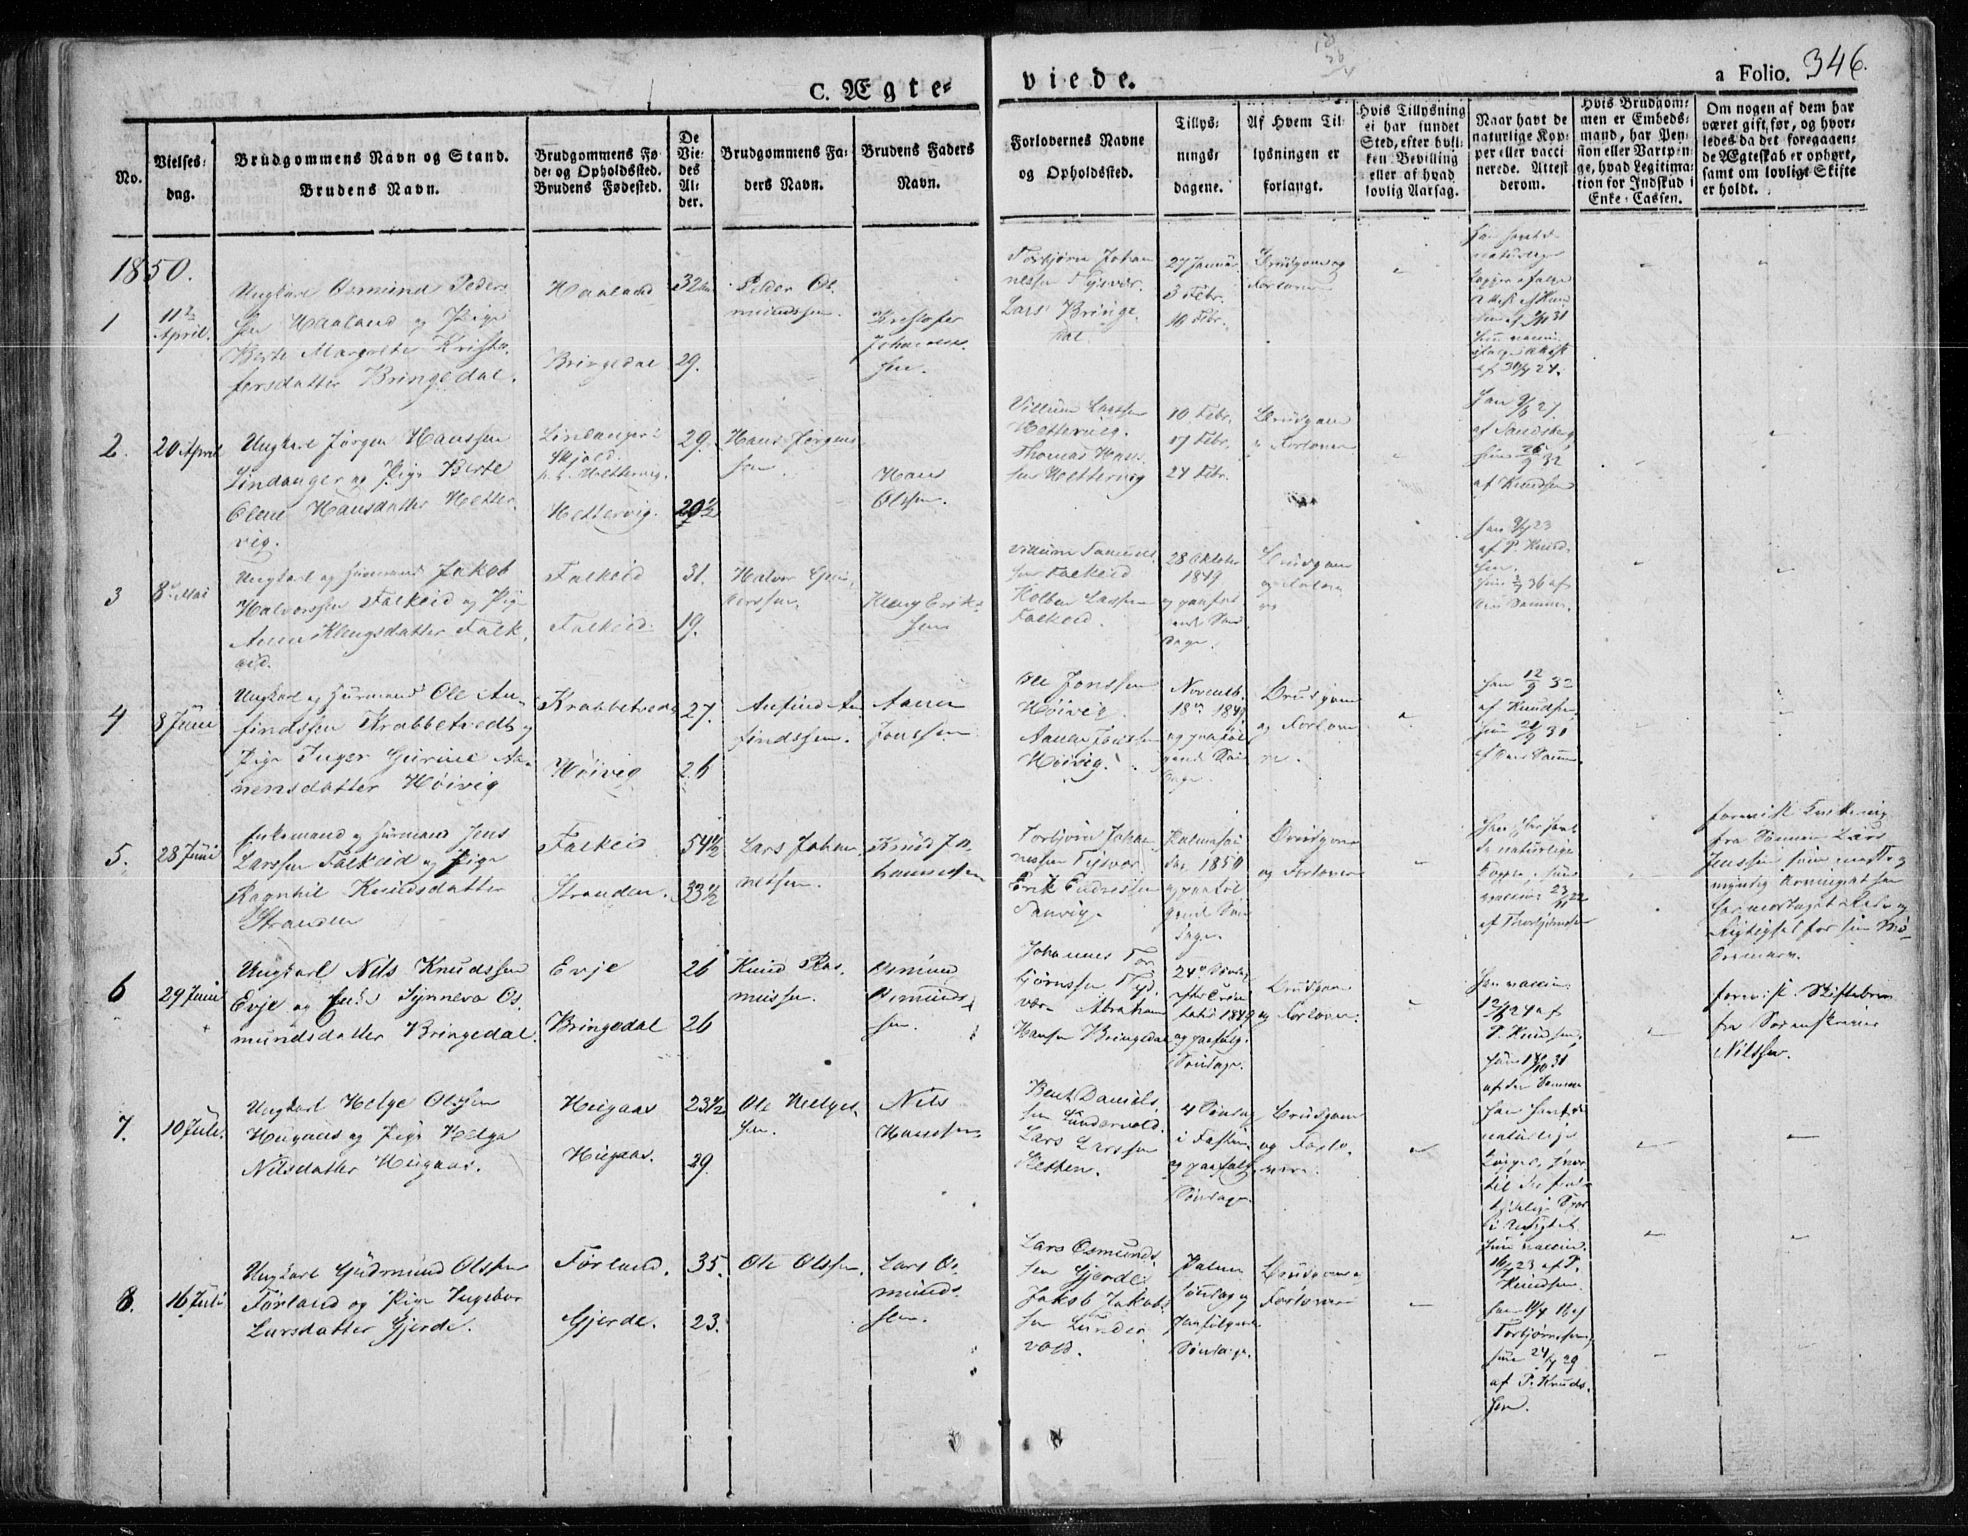 C. Ægte-
viede.
a Folio. 346.
No.
Vielses-
dag.
Brudgommens Navn og Stand.
Brudens Navn.
Brudgommens Fø-
de- og Opholdssted.
Brudens Fødested.
De
Vie-
des
Al-
der.
Brudgommens Fa-
ders Navn.
Brudens Faders
Navn.
Forlovernes Navne
og Opholdssted.
Tillys-
nings-
dagene.
Af Hvem Til-
lysningen er
forlangt.
Hvis Tillysning
ei har fundet
Sted, efter hvil-
ken Bevilling
eller af hvad
lovlig Aarsag.
Naar havt de
naturlige Kop-
per eller vacci
nerede. Attest
derom.
Hvis Brudgom-
men er Embeds-
mand, har Pen-
sion eller Vartpen-
ge, hvad Legitima-
tion for Indskud i
Enke-Cassen.
Om nogen af dem har
været gift før, og hvor-
ledes da det foregaaen-
de Ægteskab er ophørt,
samt om lovligt Skifte
er holdt.
1850.
1
11te
April.
Ungkarl Osmund Peders
sen Haaland og Pige
Berte Margrete Kristo-
fersdatter Bringedal.
Haaland
Bringedal
32
29.
Peder Os
mundssen.
Kristofer
Johannes
sen.
Torbjørn Johan
nessen Tysvær.
Lars Bringe
dal.
27 Januar
3 Febr.
10 Febr.
Brudgom og
Forlovere
2.
20 April
Ungkarl Jørgen Hanssen
Lindanger og Pige Berte
Olene Hansdatter Hetter
vig.
Lindanger i
Skjold.
Hettervig.
Hettervig.
29.
29 1/2
Hans Jørgens
sen
Hans
Olssen.
Villum Larssen
Hettervig.
Thomas Hans
sen Hettervig
10 Febr.
17 Febr.
24 Febr.
Brudgom
og Forlovere
af Knudsen
3
8de Mai
Ungkarl og Huusmand Jakob
Halvorssen Falkeid og Pige
Anna Klengsdatter Falk
eid.
Falkeid
Falkeid
31.
19.
Halvor Gun
nerssen.
Kleng Eriks
sen
Villum Samuels
sen Falkeid
Holben Larssen
Falkeid.
28 Oktober
1849
og paaføl
gende Søn
dage.
Brudgom
og Forlove
re
4
8 Juni
Ungkarl og Huusmand Ole An-
findssen Krabbetvedt og
Pige Inger Gurine Aa-
nensdatter Høivig
Krabbetvedt
Høivig
27.
26
Anfind An
findssen.
Aanen
Jonssen
Ole Jonssen
Høivig.
Aanen Jonssen
Høivig.
Novemb.
18de 1849
og paaføl
gende Søn
dage.
Brudgom
og Forlove
re.
5.
28 Juni
Enkemand og Huusmand Jens
Larssen Falkeid og Pige
Ragnhil Knudsdatter
Stranden
Falkeid
Stranden.
54 1/2
33 1/2
Lars Johan
nessen.
Knud Jo
hannessen
Torbjørn Johan
nessen Tysvær
Erik Endressen
Sanvig.
1850
og paaføl
gende Søn
dage.
Brudgom
og Forlovere
6
29 Juni
Ungkarl Nils Knudssen
Evje og Enke Synneva Os-
mundsdatter Bringedal.
Evje
Bringedal
26
26
Knud Ras
mussen.
Osmund
Osmunds
sen.
Johannes Tor
bjørnssen Tys
vær Abraham
Hansen Bringedal
24de Søndag
efter Trini
tatis 1849
og paafølg.
Søndage.
Brudgom
og Forlovere.
P. Knudsen,
forevist Skiftebrev
fra Sorenskriver
Nilsen.
7.
10 Juli.
Ungkarl Helge Olssen
Heigaas og Pige Helga
Nilsdatter Heigaas.
Heigaas
Heigaas.
23 1/2
29
Ole Helges
sen.
Nils
Hanssen
Bent Daniels.
sen Lundervold.
Lars Larssen
Hetten.
4 Søndag
i Fasten
og paafølg
Søndage.
Brudgom
og Forlo-
vere.
8.
16 Juli
Ungkarl Gudmund Olssen
Førland og Pige Ingebor
Larsdatter Gjerde.
Førland.
Gjerde.
35.
23.
Ole Olssen.
Lars Os
munds-
sen.
Lars Osmunds
sen Gjerde
Jakob Jakobs
sen Lunder
vold.
Palme
søndag og
paafølgende
Søndage.
Brudgom og
Forlovere
af P. Knuds
sen.